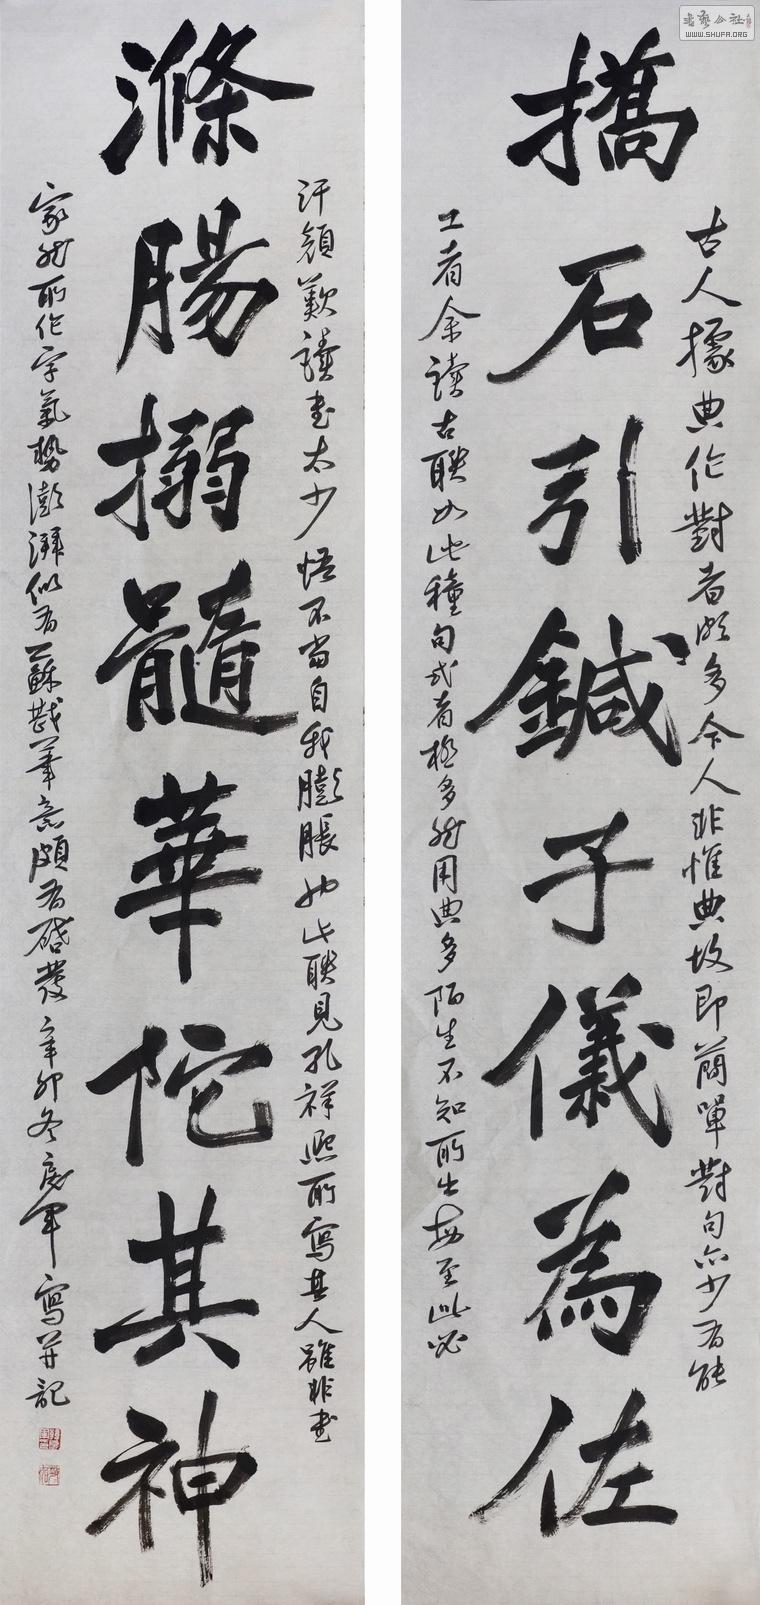 撟石引鍼子儀為佐
古人據典作對者頗多今人非惟典故即簡單對句亦少有能
工者余讀古聯如此種句式者極多然用典多陌生不知所出每至此必
滌腸搦髓華佗其神
汗顏歎讀書太少悟不當自我膨脹也此聯見孔祥熙所寫其人雖非書
家然所作字氣勢澎湃似有蘇戡筆意頗有啟發辛卯冬慶軍寫并記
書藝公社
WWW.SHUFA.ORG